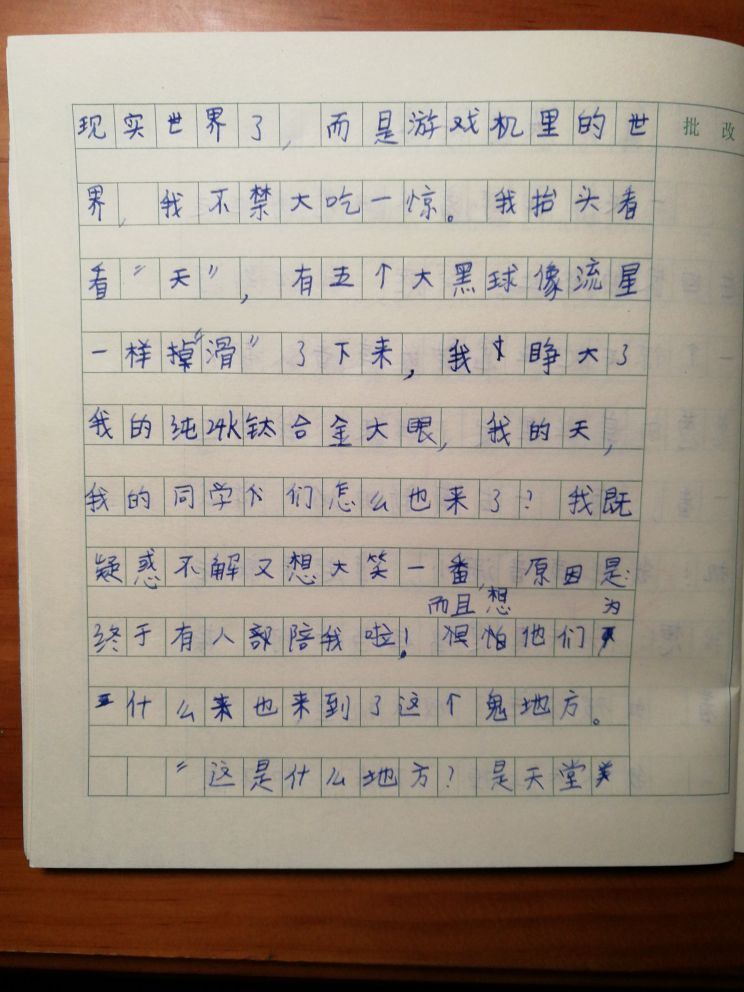 现实世界了，而是游戏机里的世
批改
界，我不禁大吃一惊。我抬头看
看“天”，有五个大黑球像流星
一样掉“滑”了下来，我睁大了
我的纯24K钛合金大眼，我的天，
我的同学们怎么也来了？我既
疑惑不解又想大笑一番，原因是：
而且想 为
终于有人部陪我啦！惧怕他们
什么来也来到了这个鬼地方。
“这是什么地方？是天堂